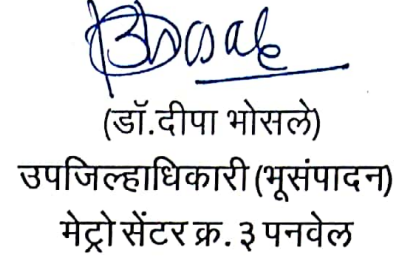 (डॉ.दीपा भोसले)
उपजिल्हाधिकारी (भूसंपादन)
मेट्रो सेंटर क्र. ३ पनवेल